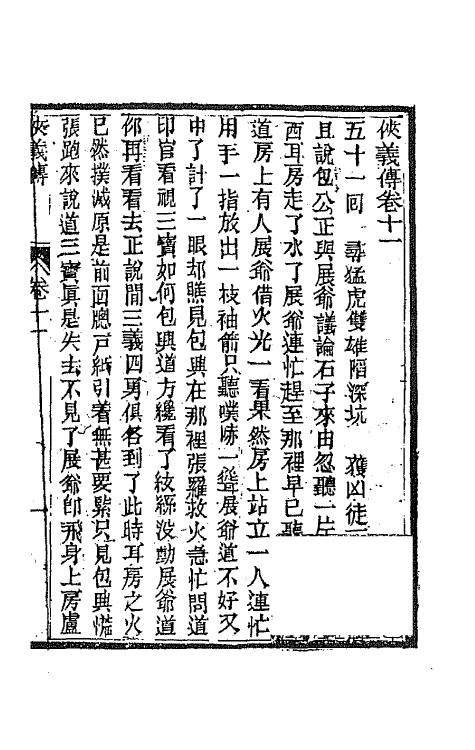 俠義傳卷十一
五十一回　尋猛虎雙雄陷深坑　獲凶徒
且說包公正與展爺議論石子來由忽聽一片
西耳房走了水了展爺連忙趕至那裡早已聽
道房上有人展爺借火光一看果然房上站立一人連忙
用手一指放出一枝袖箭只聽噗哧一聲展爺道不好又
中了計了一眼却瞧見包興在那裡張羅救火急忙問道
印官看視三寶如何包興道方纔看了紋絲没動展爺道
你再看看去正說間三義四勇俱各到了此時耳房之火
已然撲滅原是前面窻戶紙引着無甚要緊只見包興慌
張跑來說道三寶真是失去不見了展爺卽飛身上房盧
俠義傳　卷十一　一